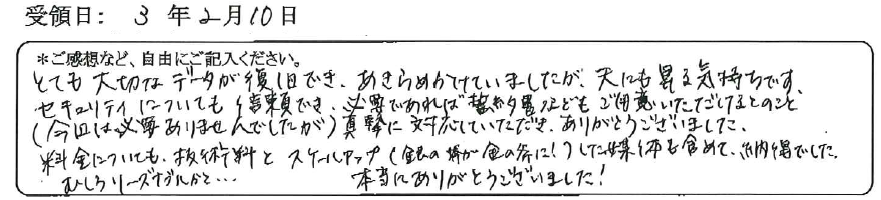 受領日: 3 年 2 月 10 日
*ご感想など、自由にご記入ください。
とても大切なデータが復旧でき、あきらめかけていましたが、天にも昇る気持ちです。
セキュリティについても信頼でき、必要であれば誓約書などもご用意いただてるとのこと
(今回は必要ありませんでしたが)真摯に対応していただき、ありがとうございました。
料金についても、技術料とスケールアップ(銀の斧が金の斧に!)した媒体も含めて、納得でした。
むしろリーズナブルかと… 本当にありがとうございました!